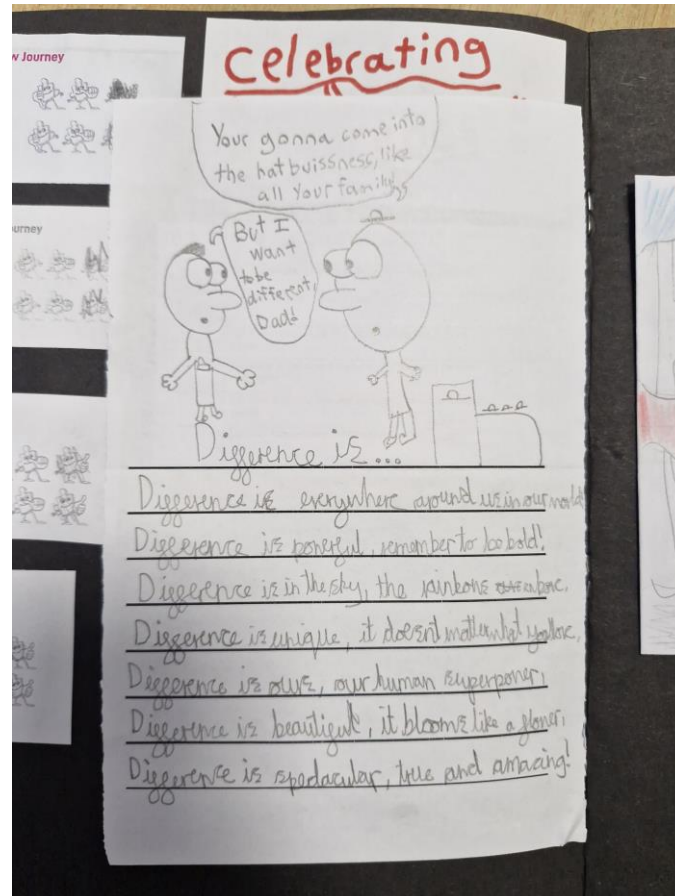 w Journey
Celebrating
Your gonna come into
the hat buissness, like
all your family
But I
want
to be
different,
Dad!
urney
Difference is...
Difference is everywhere around us in our world!
Difference is powerful, remember to be bold!
Difference is in the sky, the rainbows above.
Difference is unique, it doesnt matter what you love,
Difference is ours, our human superpower,
Difference is beautiful, it blooms like a flower,
Difference is spectacular, true and amazing!